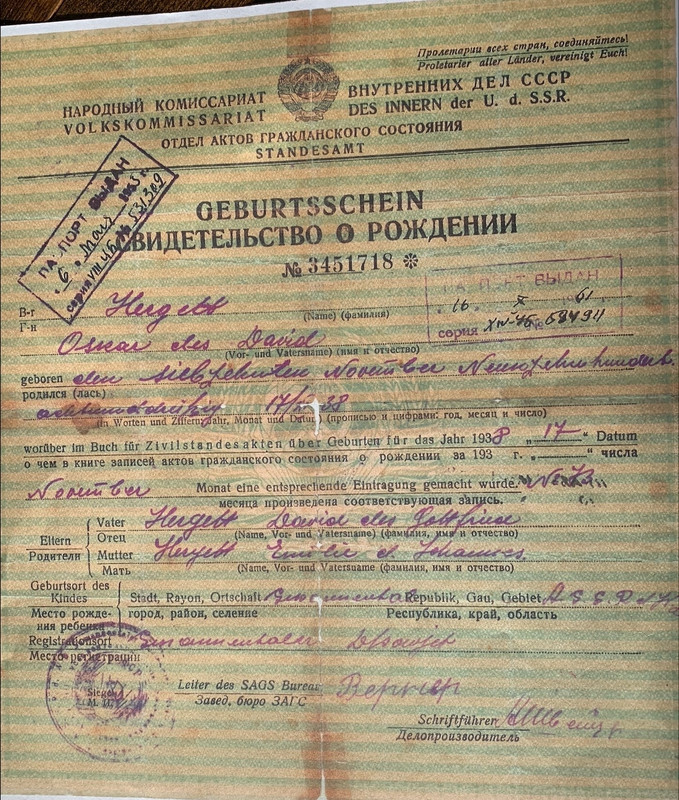 Пролетарии всех стран, соединяйтесь!
Proletarier aller Länder, vereinigt Euch!
НАРОДНЫЙ КОМИССАРИАТ ВНУТРЕННИХ ДЕЛ СССР
VOLKSKOMMISSARIAT DES INNERN der U. d. S.S.R.
ОТДЕЛ АКТОВ ГРАЖДАНСКОГО СОСТОЯНИЯ
STANDESAMT
ПАСПОРТ ВЫДАН
6
серия
GEBURTSSCHEIN
СВИДЕТЕЛЬСТВО О РОЖДЕНИИ
№ 3451718
ПАСПОРТ ВЫДАН
16. X 1961
серия XIV-УБ №
B-r Hergett
Г-н (Name) (фамилия)
Oskar des David
(Vor- und Vatersname) (имя и отчество)
geboren den siebzehnten November Neunzehnhundert
родился (лась)
achtunddreißig 38
(in Worten und Ziffern: Jahr, Monat und Datum) (прописью и цифрами: год, месяц и число)
worüber im Buch für Zivilstandesakten über Geburten für das Jahr 1938 „17“ Datum
о чем в книге записей актов гражданского состояния о рождении за 193 г. „ “ числа
November Monat eine entsprechende Eintragung gemacht wurde.
месяца произведена соответствующая запись.
Eltern Vater Hergett David des Gottfried
Родители Отец (Name, Vor- und Vatersname) (фамилия, имя и отчество)
Mutter Hergett Emilie d. Johannes
Мать (Name, Vor- und Vatersname) (фамилия, имя и отчество)
Geburtsort des Kindes Stadt, Rayon, Ortschaft Republik, Gau, Gebiet
Место рождения ребенка город, район, селение Республика, край, область
Registrationsort
Место регистрации
Leiter des SAGS Bureau Вернер
Завед. бюро ЗАГС
Schriftführer
Делопроизводитель